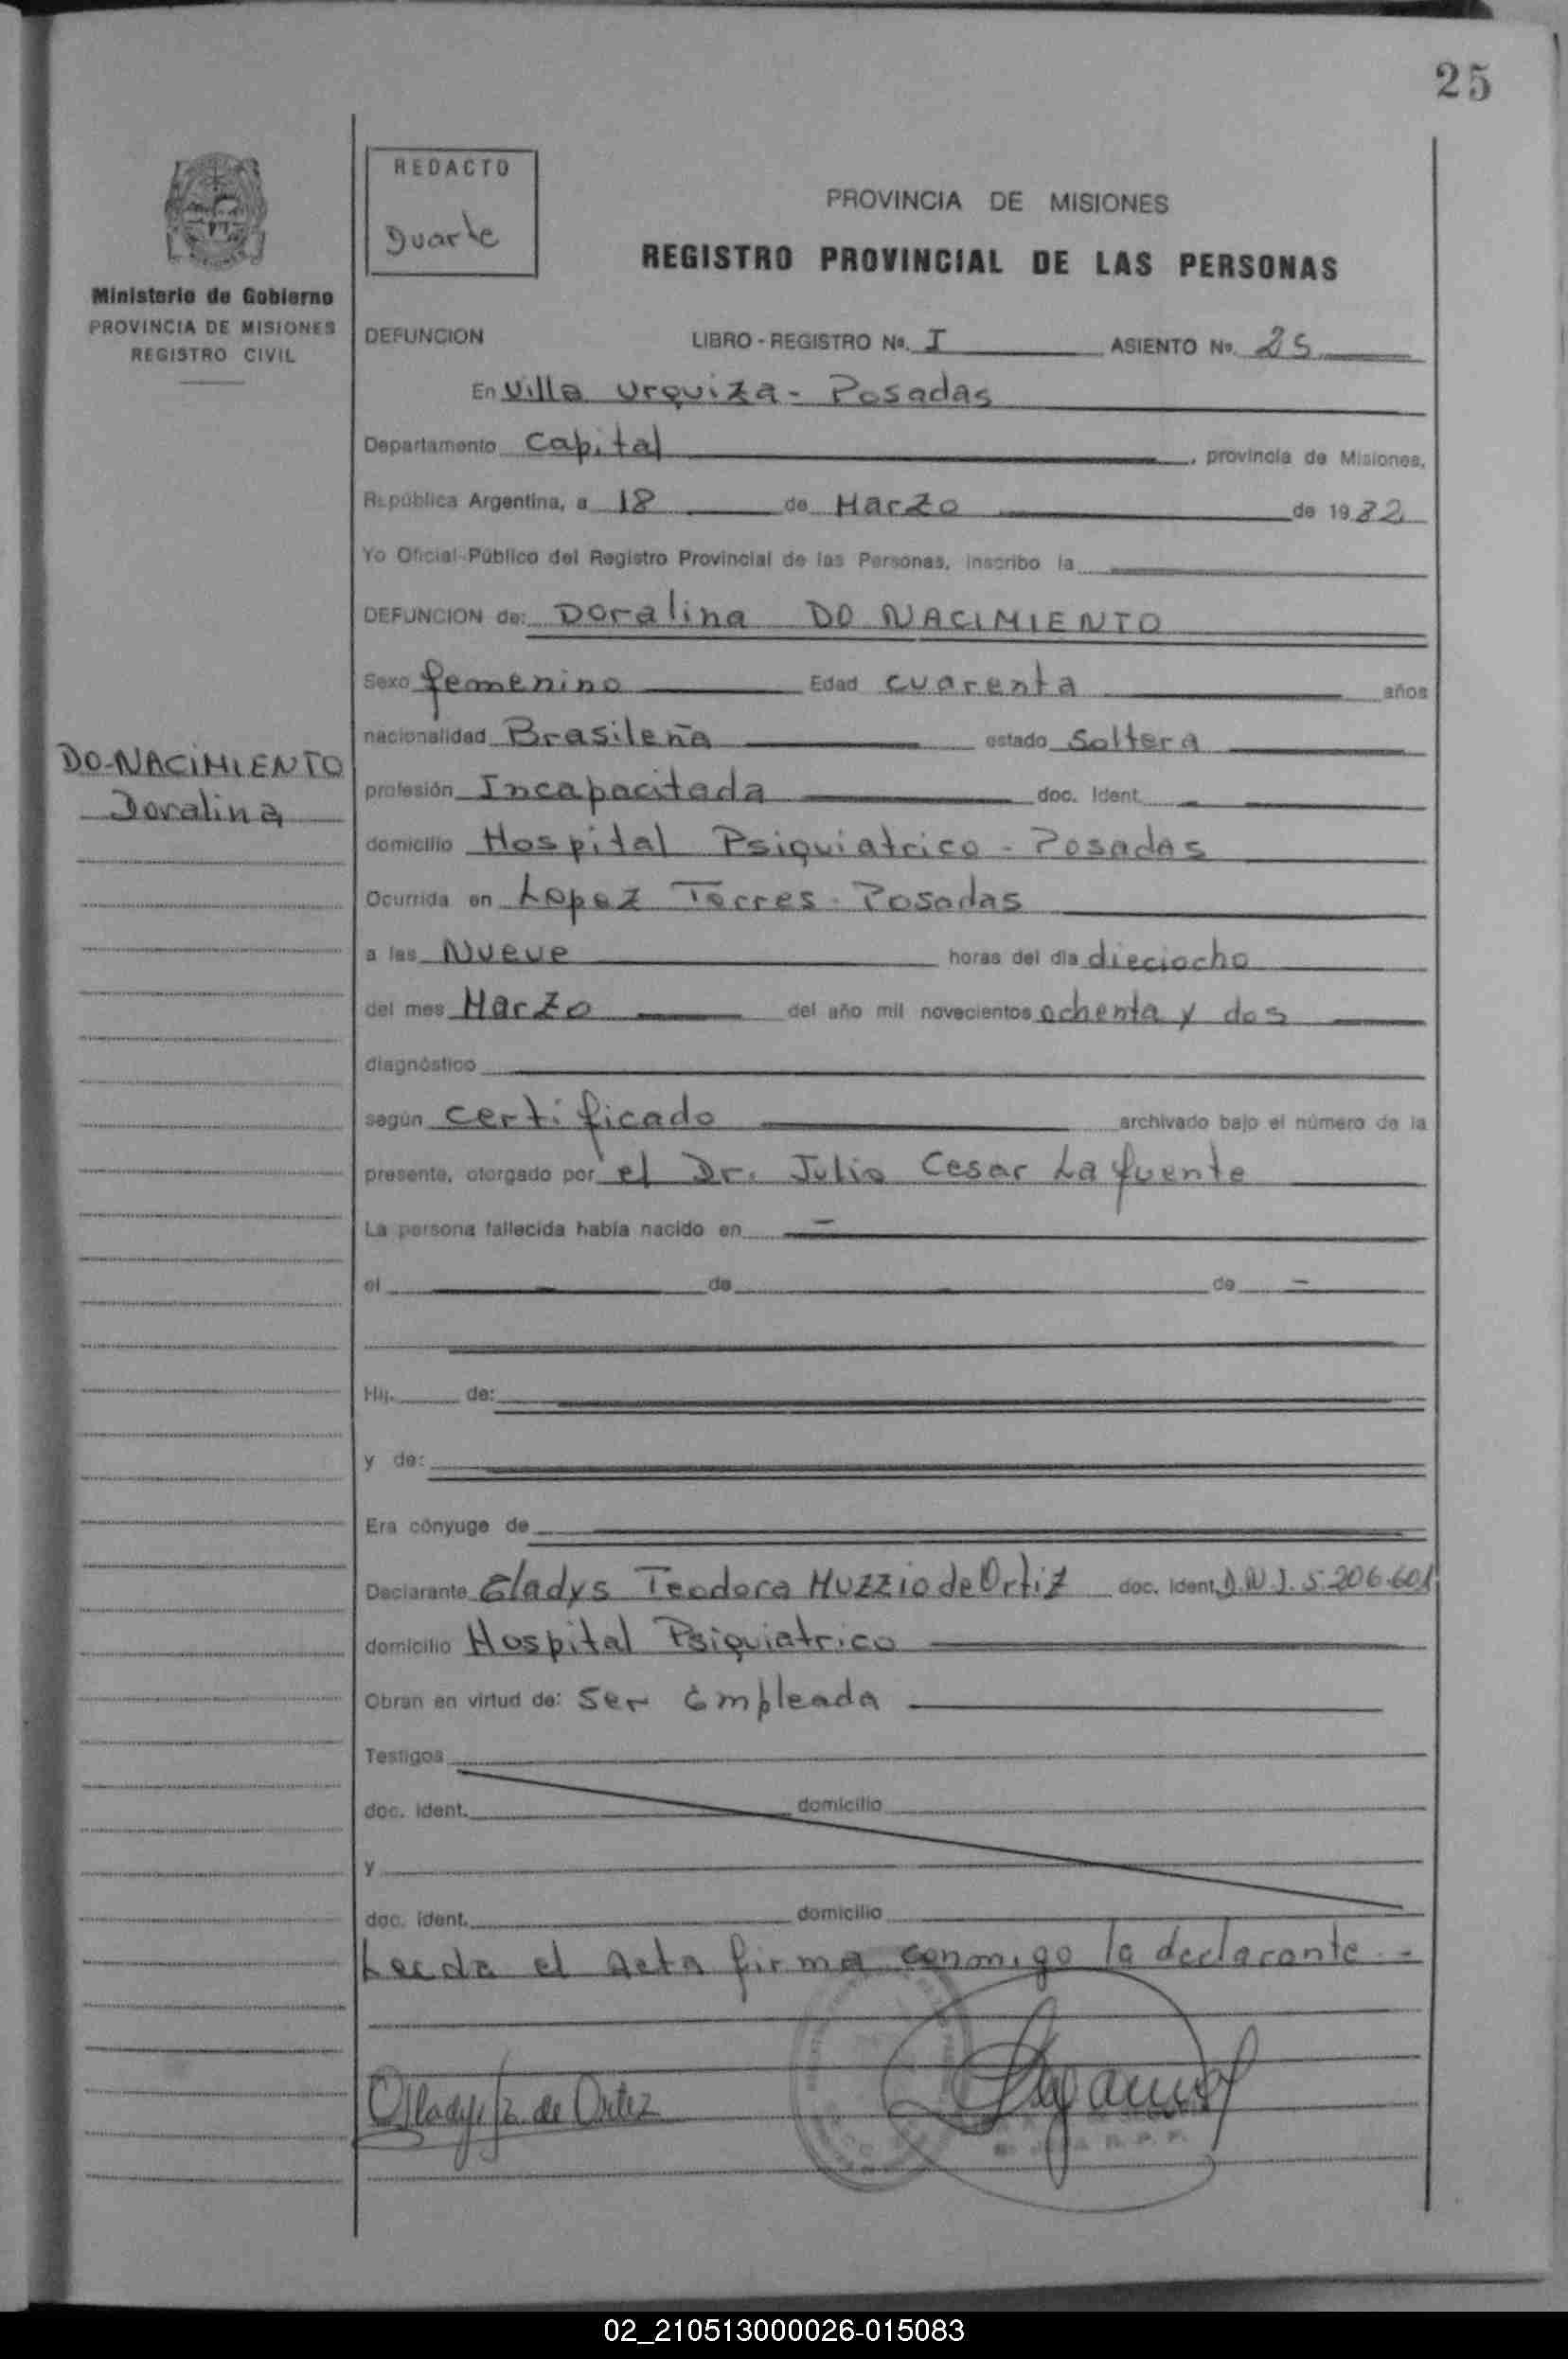 25
REDACTO
Duarte
PROVINCIA DE MISIONES
REGISTRO PROVINCIAL DE LAS PERSONAS
Ministerio de Gobierno
PROVINCIA DE MISIONES
REGISTRO CIVIL
DEFUNCION LIBRO - REGISTRO Nº. I ASIENTO Nº. 25
En Villa Urquiza - Posadas
Departamento Capital, provincia de Misiones,
República Argentina, a 18 de Marzo de 1982
Yo Oficial Público del Registro Provincial de las Personas, inscribo la
DEFUNCION de: Doralina DO NACIMIENTO
Sexo femenino Edad cuarenta años
nacionalidad Brasileña estado Soltera
DO-NACIMIENTO
Doralina
profesión Incapacitada doc. Ident. -
domicilio Hospital Psiquiatrico - Posadas
Ocurrida en Lopez Torres - Posadas
a las Nueve horas del día dieciocho
del mes Marzo del año mil novecientos ochenta y dos
diagnóstico
según certificado archivado bajo el número de la
presente, otorgado por el Dr. Julio Cesar Lafuente
La persona fallecida había nacido en -
el - de - de -
Hij. de:
y de:
Era cónyuge de
Declarante Gladys Teodora Muzzio de Ortiz doc. Ident. D.N.I. 5.206.601
domicilio Hospital Psiquiatrico
Obran en virtud de: Ser Empleada
Testigos
doc. ident. domicilio
y
doc. ident. domicilio
Leida el Acta firma conmigo la declarante. -
Gladys de Ortiz
R. P. P.
02_210513000026-015083